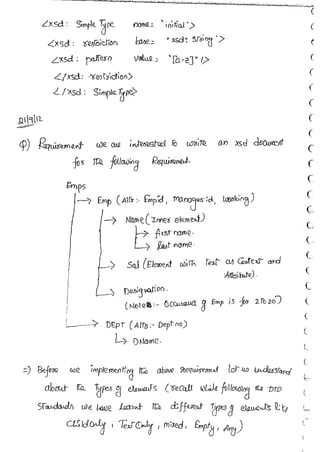 <xsd: Simple Type name= "initial">
<xsd: restriction base= "xsd: string">
<xsd: pattern value= "[a-z]" />
</xsd: restriction>
</xsd: Simple Type>
21/9/12
Q) Requirement we are interested to write an xsd document
for the following Requirement.
Emps
→ Emp (Attr :- Empid, managerid, working)
→ Name (Inner element)
→ first name.
→ last name.
→ Sal (Element with text as Content and
Attribute).
→ Designation.
(Note :- Occurance of Emp is for 2 to 20)
→ DEPT (Attr :- Dept no)
→ DName.
=) Before we implementing the above requirement let us understand
about the types of elements (recall while following the DTD
standards we have learnt the different types of elements like
Child only, Text Only, mixed, Empty, Any)